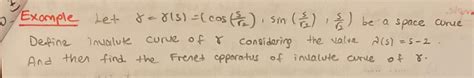 Example Let γ = γ(s) = (cos(s/√2), sin(s/√2), s/√2) be a space curve
Define involute curve of γ considering the value λ(s) = s-2.
And then find the Frenet apparatus of involute curve of γ.